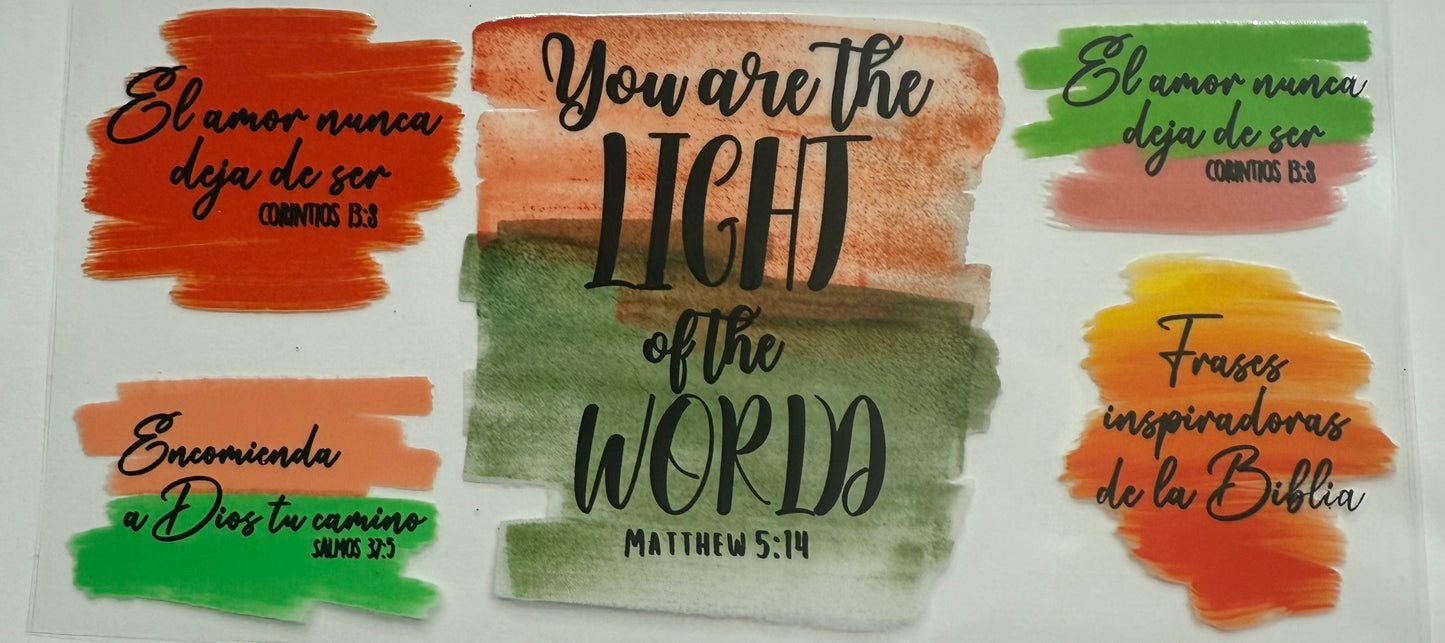 El amor nunca
deja de ser
CORINTIOS 13:8
Encomienda
a Dios tu camino
SALMOS 37:5
You are the
LIGHT
of the
WORLD
MATTHEW 5:14
El amor nunca
deja de ser
CORINTIOS 13:8
Frases
inspiradoras
de la Biblia